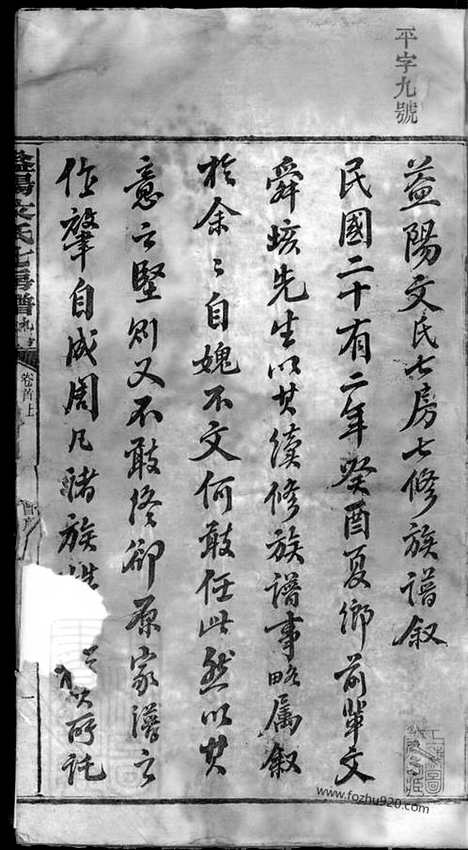 平字九號
益陽文氏七房七修族譜叙
民國二十有二年癸酉夏鄉前輩文
舜該先生以其續修族譜事略属叙
於余々自媿不文何敢任此然以其
意之堅則又不敢終卻原家譜之
作肇自成周凡諸族
以所託
益陽文氏七房譜
卷首上
www.fozhu920.com